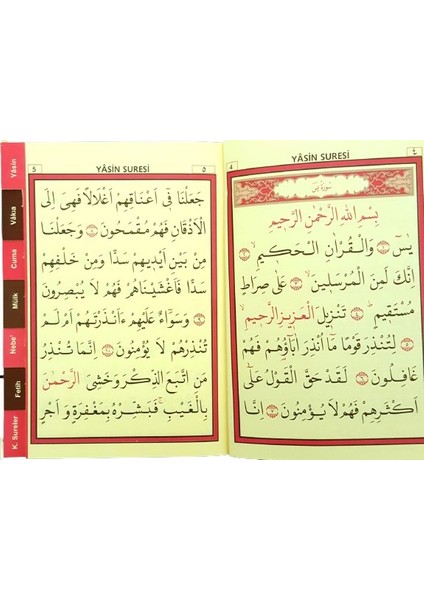 ٤
YÂSİN SURESİ
4
سُورَةُ يٰسٓ
بِسْمِ اللّٰهِ الرَّحْمٰنِ الرَّحِيمِ
يٰسٓ ﴿١﴾ وَالْقُرْاٰنِ الْحَكِيمِ ﴿٢﴾
اِنَّكَ لَمِنَ الْمُرْسَلِينَ ﴿٣﴾ عَلٰى صِرَاطٍ
مُسْتَقِيمٍ ﴿٤﴾ تَنْزِيلَ الْعَزِيزِ الرَّحِيمِ ﴿٥﴾
لِتُنْذِرَ قَوْمًا مَٓا اُنْذِرَ اٰبَٓاؤُ۬هُمْ فَهُمْ
غَافِلُونَ ﴿٦﴾ لَقَدْ حَقَّ الْقَوْلُ عَلٰٓى
اَكْثَرِهِمْ فَهُمْ لَا يُؤْمِنُونَ ﴿٧﴾ اِنَّا
5
YÂSİN SURESİ
٥
جَعَلْنَا فِٓي اَعْنَاقِهِمْ اَغْلَالًا فَهِيَ اِلَى
الْاَذْقَانِ فَهُمْ مُقْمَحُونَ ﴿٨﴾ وَجَعَلْنَا
مِنْ بَيْنِ اَيْدِيهِمْ سَدًّا وَمِنْ خَلْفِهِمْ
سَدًّا فَاَغْشَيْنَاهُمْ فَهُمْ لَا يُبْصِرُونَ
﴿٩﴾ وَسَوَٓاءٌ عَلَيْهِمْ ءَاَنْذَرْتَهُمْ اَمْ لَمْ
تُنْذِرْهُمْ لَا يُؤْمِنُونَ ﴿١٠﴾ اِنَّمَا تُنْذِرُ
مَنِ اتَّبَعَ الذِّكْرَ وَخَشِيَ الرَّحْمٰنَ
بِالْغَيْبِۚ فَبَشِّرْهُ بِمَغْفِرَةٍ وَاَجْرٍ
Yâsin
Vâkıa
Cuma
Mülk
Nebe'
Fetih
K. Sureler